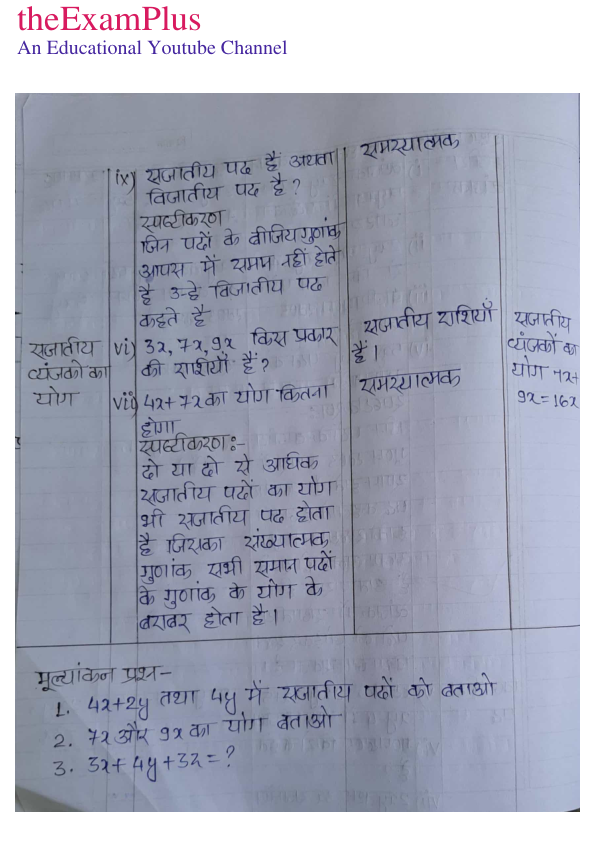 theExamPlus
An Educational Youtube Channel
ix) सजातीय पद हैं अथवा
विजातीय पद है ?
स्पष्टीकरण
जिन पदों के बीजियगुणांक
आपस में समान नहीं होते
है उन्हे विजातीय पद
कहते है
समस्यात्मक
सजातीय
व्यंजकों का
योग
vi) 3x, 7x, 9x किस प्रकार
की राशियाँ हैं ?
सजातीय राशियाँ
हैं ।
vii) 4x + 7x का योग कितना
होगा
समस्यात्मक
स्पष्टीकरण :-
दो या दो से अधिक
सजातीय पदों का योग
भी सजातीय पद होता
है जिसका संख्यात्मक
गुणांक सभी समान पदों
के गुणांक के योग के
बराबर होता है ।
सजातीय
व्यंजकों का
योग 7x+
9x = 16x
मूल्यांकन प्रश्न -
1. 4x+2y तथा 4y में सजातीय पदों को बताओ
2. 7x और 9x का योग बताओ
3. 3x + 4y + 3x = ?